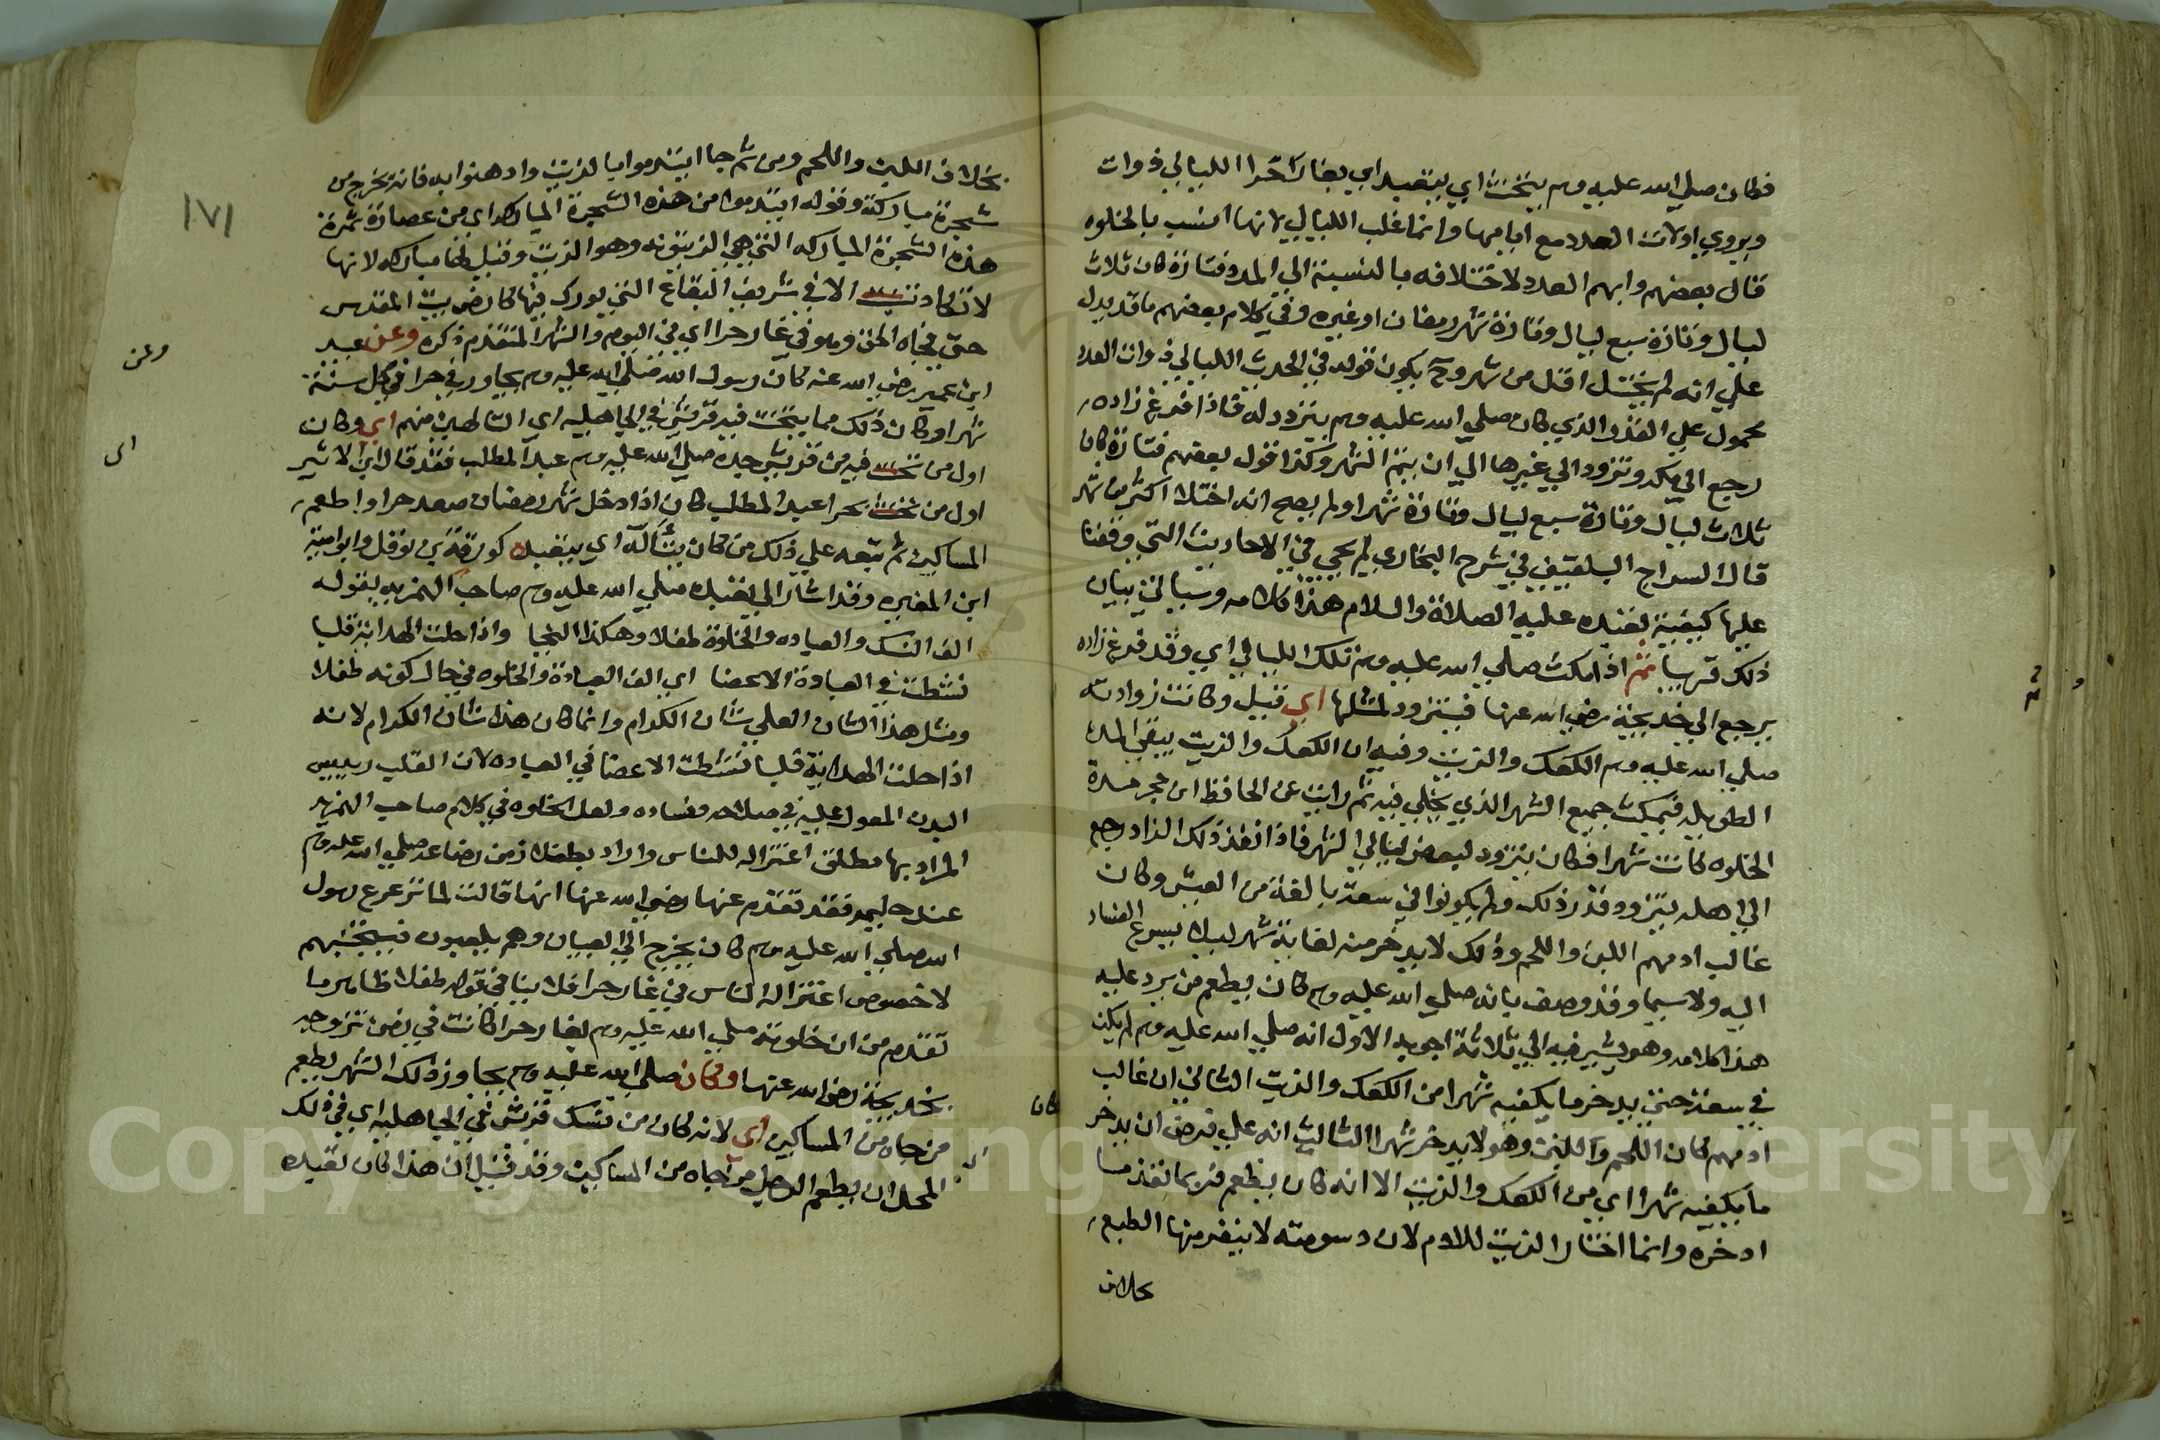 فكان صلي الله عليه وسم يتحنث اي يتعبد اي بغار حرا الليالي ذوات
ويروي اولات العدد مع ايامها وانما غلب الليالي لانها انسب بالخلوه
قال بعضهم وابهم العدد لاختلافه بالنسبة الي المدد فتارة كان ثلاث
ليال وتارة سبع ليال وتارة شهر رمضان او غيره وفي كلام بعضهم ما قد يدل
علي انه لم يختل اقل من شهر وح يكون قوله في الحديث الليالي ذوات العدد
محمول علي القدر الذي كان صلي الله عليه وسم يتزود له فاذا فرغ زاده
رجع الي مكه وتزود الي غيرها الي ان يتم الشهر وكذا قول بعضهم فتارة كان
ثلاث ليال وتارة سبع ليال وتارة شهرا ولم يصح انه اختلا اكثر من شهر
قال السراج البلقيني في شرح البخاري لم يجي في الاحاديث التي وقفنا
عليها كيفية تعبده عليه الصلاة والسلام هذا كلامه وسياتي بيان
ذلك قريبا ثم اذا مكث صلي الله عليه وسم تلك الليالي اي وقد فرغ زاده
يرجع الي خديجة رضي الله عنها فيتزود لمثلها اي قيل وكانت زوادته
صلي الله عليه وسم الكعك والزيت وفيه ان الكعك والزيت يبقي المده
الطويله فيمكث جميع الشهر الذي يختلي فيه ثم رايت عن الحافظ ابن حجر مدة
الخلوه كانت شهرا فكان يتزود لبعض ليالي الشهر فاذا نفد ذلك الزاد رجع
الي اهله يتزود قدر ذلك ولم يكونوا في سعة بالغة من العيش وكان
غالب ادمهم اللبن واللحم وذلك لا يدخر منه لغاية شهر ليلا يسرع الفساد
اليه ولاسيما وقد وصف بانه صلي الله عليه وسم كان يطعم من يرد عليه
هذا كلامه وهو يشير فيه الي ثلاثة اجوبه الاول انه صلي الله عليه وسم لم يكن
في سعة حتي يدخر ما يكفيه شهرا من الكعك والزيت الثاني ان غالب
ادمهم كان اللحم واللبن وهو لا يدخر شهرا الثالث انه علي فرض ان يدخر
ما يكفيه شهرا اي من الكعك والزيت الا انه كان يطعم فربما نفد ما
ادخره وانما اختار الزيت للادم لان دسومته لا ينفر منها الطبع
بخلاف
١٧١
بخلاف اللبن واللحم ومن ثم جا ايتدموا بالزيت وادهنوا به فانه يخرج من
شجرة مباركة وقوله ايتدموا من هذه الشجرة المباركه اي من عصارة ثمرة
هذه الشجرة المباركه التي هي الزيتونه وهو الزيت وقيل لها مباركه لانها
لا تكاد تنبت الا في شريف البقاع التي بورك فيها كارض بيت المقدس
حتي فجاه الحق وهو في غار حرا اي في اليوم والشهر المتقدم ذكره وعن عبيد
ابن عمير رضي الله عنه كان رسول الله صلي الله عليه وسم يجاور في حرا في كل سنة
شهرا وكان ذلك مما يتحنث فيه قريش في الجاهليه اي المتالهين منهم اي وكان
اول من تحنث فيه من قريش جده صلي الله عليه وسم عبد المطلب فقد قال ابن الاثير
اول من تحنث بحرا عبد المطلب كان اذا دخل شهر رمضان صعد حرا واطعم
المساكين ثم تبعه علي ذلك من كان يتاله اي يتعبد كورقة بن نوفل وابو امية
ابن المغيره وقد اشار الي تعبده صلي الله عليه وسم صاحب الهمزيه بقوله
الف النسك والعباده والخلوة طفلا وهكذا النجبا واذا حلت الهداية قلبا
نشطت في العبادة الاعضا اي الف العبادة والخلوه في حال كونه طفلا
ومثل هذا الشان العلي شان الكرام وانما كان هذا شان الكرام لانه
اذا حلت الهداية قلبا نشطت الاعضا في العباده لان القلب رييس
البدن المعول عليه في صلاحه وفساده ولعل الخلوه في كلام صاحب الهمزيه
المراد بها مطلق اعتزاله للناس واراد بطفلا زمن رضاعه صلي الله عليه وسم
عند حليمه فقد تقدم عنها رضي الله عنها انها قالت لما ترعرع رسول
الله صلي الله عليه وسم كان يخرج الي الصبيان وهم يلعبون فيتجنبهم
لا خصوص اعتزاله الناس في غار حرا فلا ينافي قوله طفلا ظاهر ما
تقدم من ان خلوته صلي الله عليه وسم بغار حرا كانت في زمن تزوجه
بخديجة رضي الله عنها وكان صلي الله عليه وسم يجاور ذلك الشهر يطعم
من جاه من المساكين اي لانه كان من نسك قريش في الجاهليه اي في ذلك
المحل ان يطعم الرجل من جاه من المساكين وقد قيل ان هذا كان تعبده
وعن
اي
كان
Copyright © King Saud University